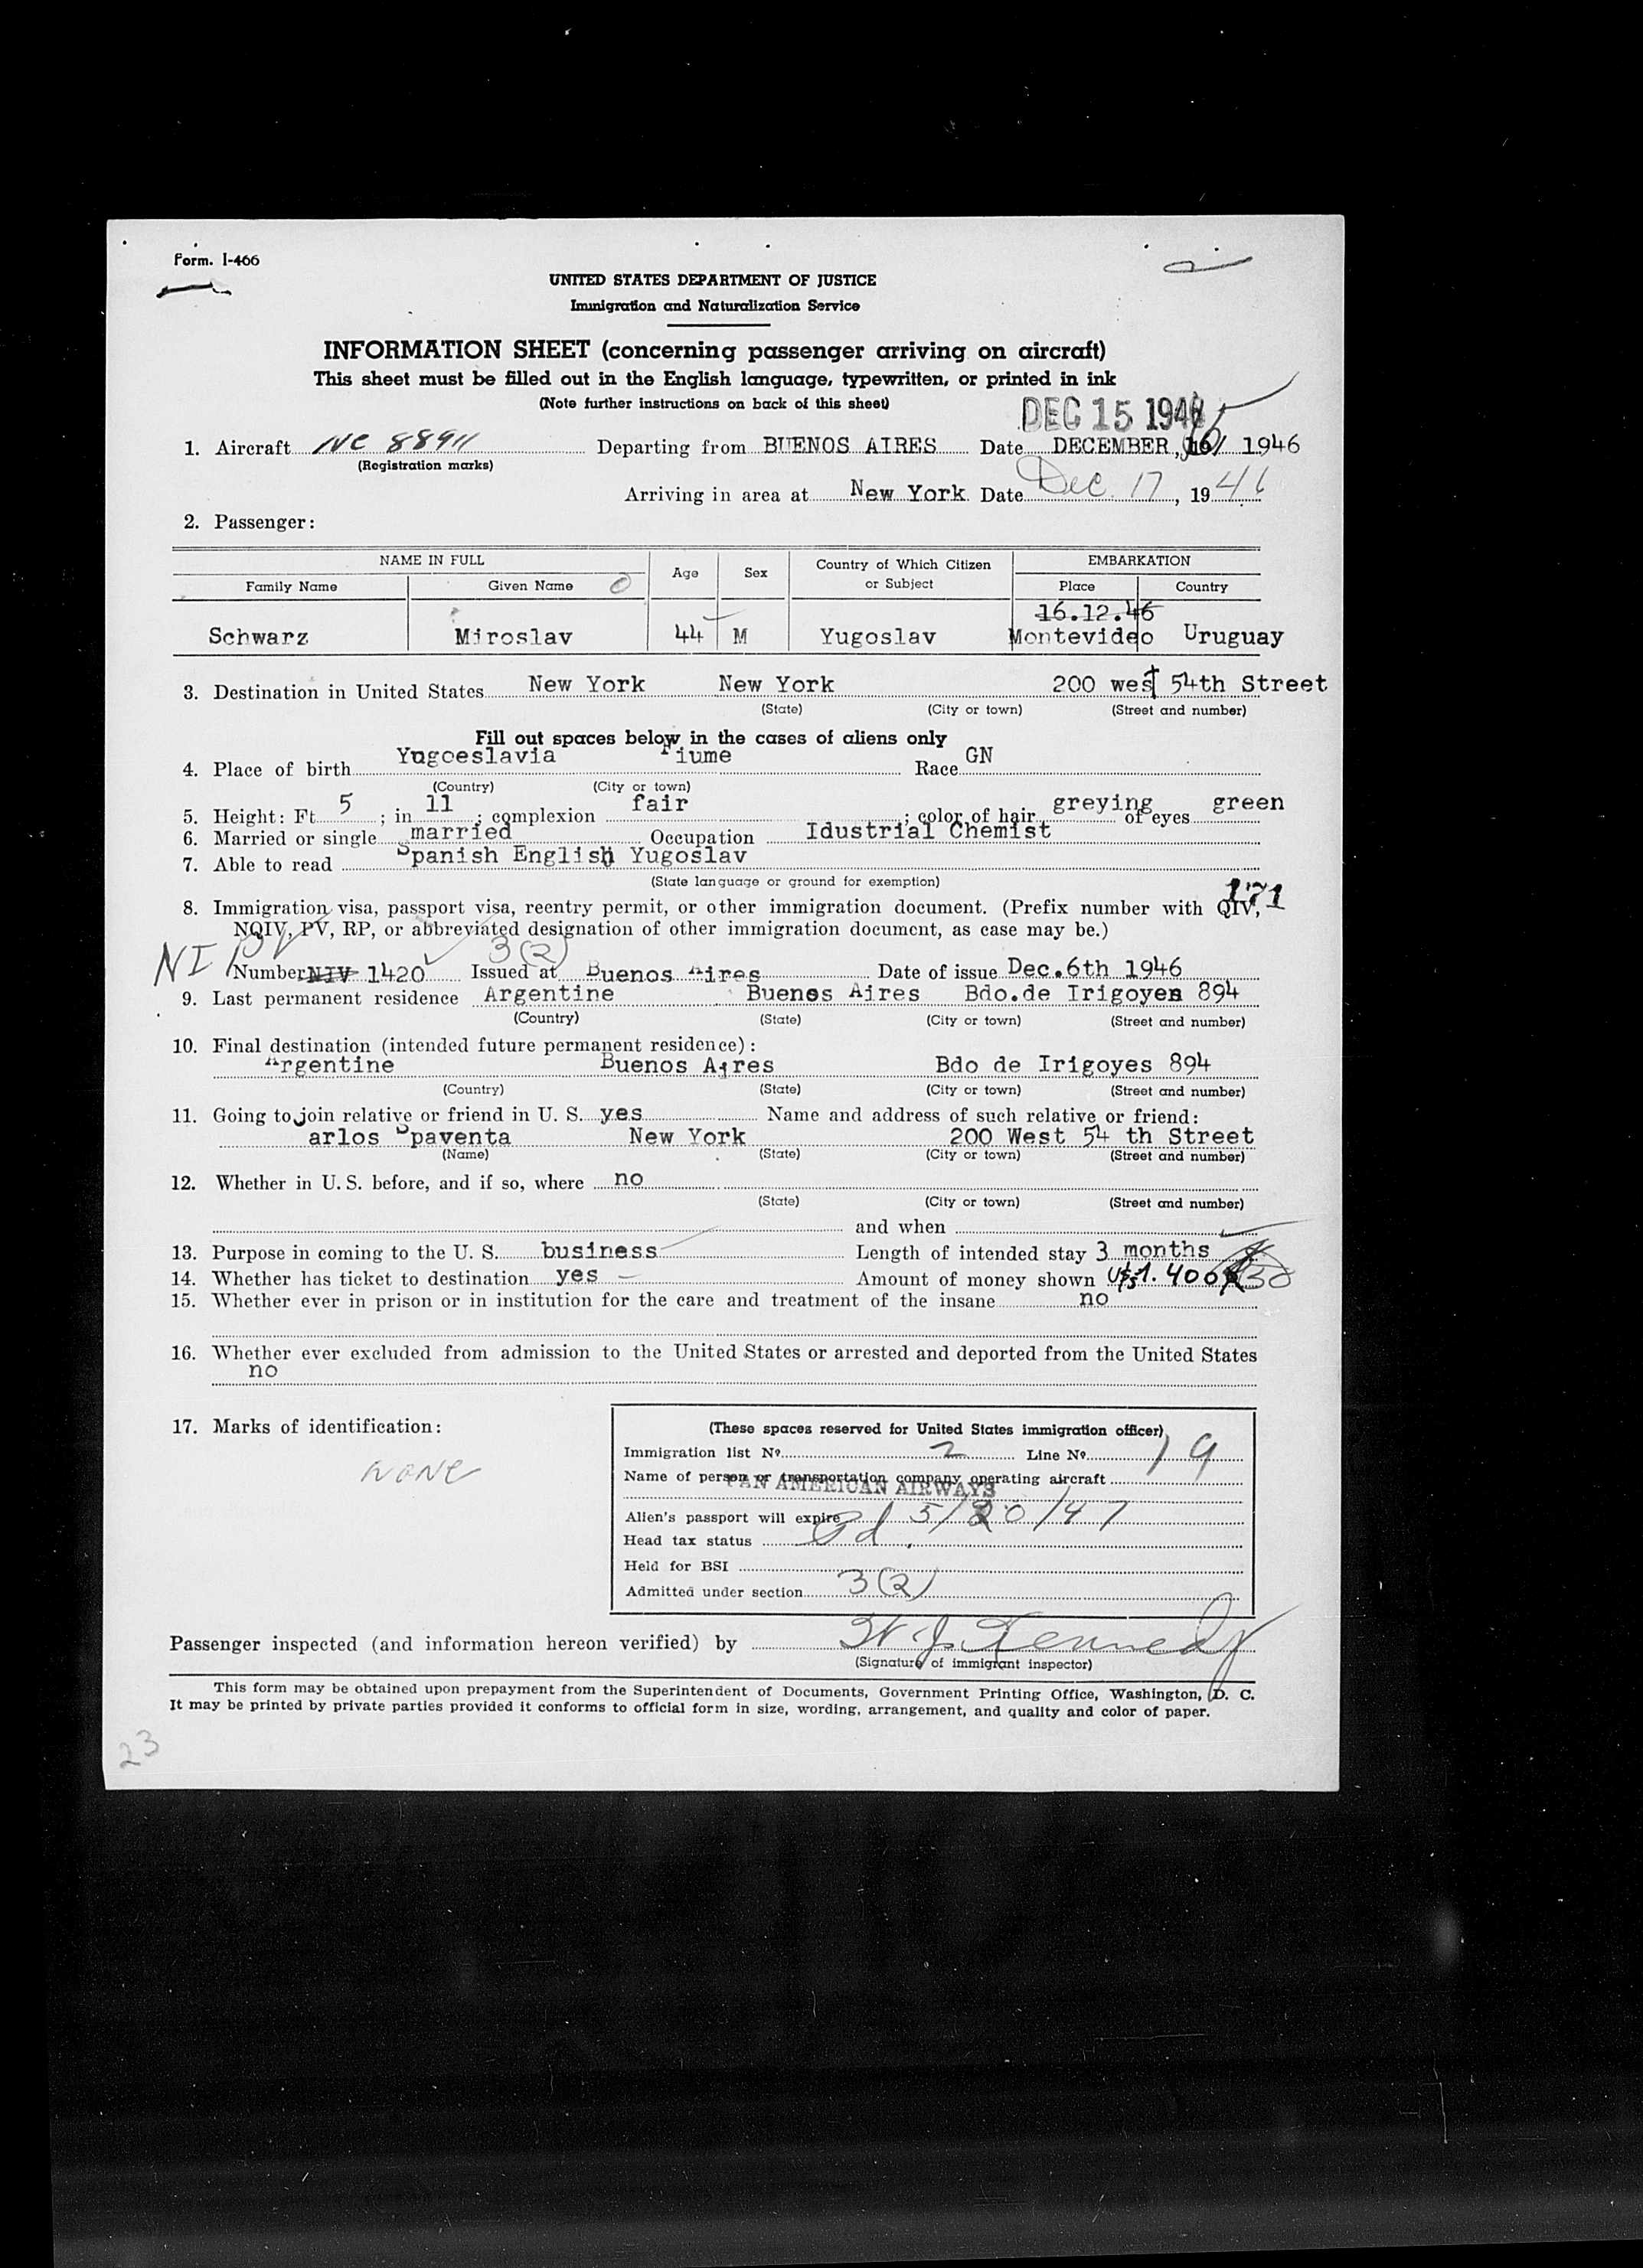 Form. I-466
UNITED STATES DEPARTMENT OF JUSTICE
Immigration and Naturalization Service
INFORMATION SHEET (concerning passenger arriving on aircraft)
This sheet must be filled out in the English language, typewritten, or printed in ink
(Note further instructions on back of this sheet)
DEC 15 1946
1. Aircraft NC 88911 Departing from BUENOS AIRES Date DECEMBER, 1946
(Registration marks)
Arriving in area at New York Date Dec. 17, 1946
2. Passenger:
NAME IN FULL Age Sex Country of Which Citizen or Subject EMBARKATION
Family Name Given Name Place Country
16.12.46
Schwarz Miroslav 44 M Yugoslav Montevideo Uruguay
3. Destination in United States New York New York 200 west 54th Street
(State) (City or town) (Street and number)
Fill out spaces below in the cases of aliens only
4. Place of birth Yugoeslavia Fiume Race GN
(Country) (City or town)
5. Height: Ft 5 ; in 11 ; complexion fair ; color of hair greying of eyes green
6. Married or single married Occupation Idustrial Chemist
7. Able to read Spanish English Yugoslav
(State language or ground for exemption)
171
8. Immigration visa, passport visa, reentry permit, or other immigration document. (Prefix number with QIV,
NQIV, PV, RP, or abbreviated designation of other immigration document, as case may be.)
NI PV 3(2)
Number NIV 1420 Issued at Buenos Aires Date of issue Dec.6th 1946
9. Last permanent residence Argentine Buenos Aires Bdo.de Irigoyen 894
(Country) (State) (City or town) (Street and number)
10. Final destination (intended future permanent residence):
Argentine Buenos Aires Bdo de Irigoyes 894
(Country) (State) (City or town) (Street and number)
11. Going to join relative or friend in U. S. yes Name and address of such relative or friend:
arlos Spaventa New York 200 West 54 th Street
(Name) (State) (City or town) (Street and number)
12. Whether in U. S. before, and if so, where no
(State) (City or town) (Street and number)
and when
13. Purpose in coming to the U. S. business Length of intended stay 3 months
14. Whether has ticket to destination yes Amount of money shown U$S 1.400
15. Whether ever in prison or in institution for the care and treatment of the insane no
16. Whether ever excluded from admission to the United States or arrested and deported from the United States
no
17. Marks of identification:
none
(These spaces reserved for United States immigration officer)
Immigration list No. 2 Line No. 19
Name of person or transportation company operating aircraft
PAN AMERICAN AIRWAYS
Alien's passport will expire 5/20/47
Head tax status Pd.
Held for BSI
Admitted under section 3(2)
Passenger inspected (and information hereon verified) by W. J. Kennedy
(Signature of immigrant inspector)
This form may be obtained upon prepayment from the Superintendent of Documents, Government Printing Office, Washington, D. C.
It may be printed by private parties provided it conforms to official form in size, wording, arrangement, and quality and color of paper.
23